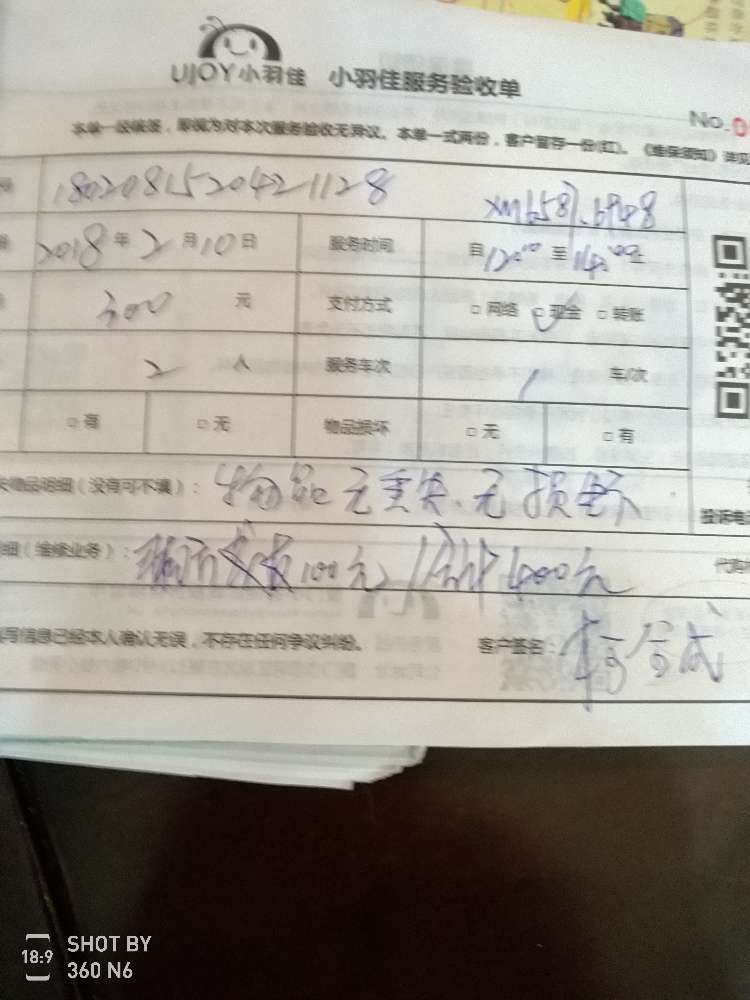 UJOY小羽佳 小羽佳服务验收单
No.0
本单一经核签，即视为对本次服务验收无异议。本单一式两份，客户留存一份(红)。《维保须知》详见
1802081520421128
2018年2月10日 服务时间 自12:00至14:00止
300元 支付方式 □网络 □现金 □转账
2人 服务车次 1车/次
□有 □无 物品损坏 □无 □有
失物品明细（没有可不填）：物品无丢失、无损坏
投诉电
细（维修业务）：100元 合计400元
代购
填写信息已经本人确认无误，不存在任何争议纠纷。 客户签名：
18:9 SHOT BY
360 N6